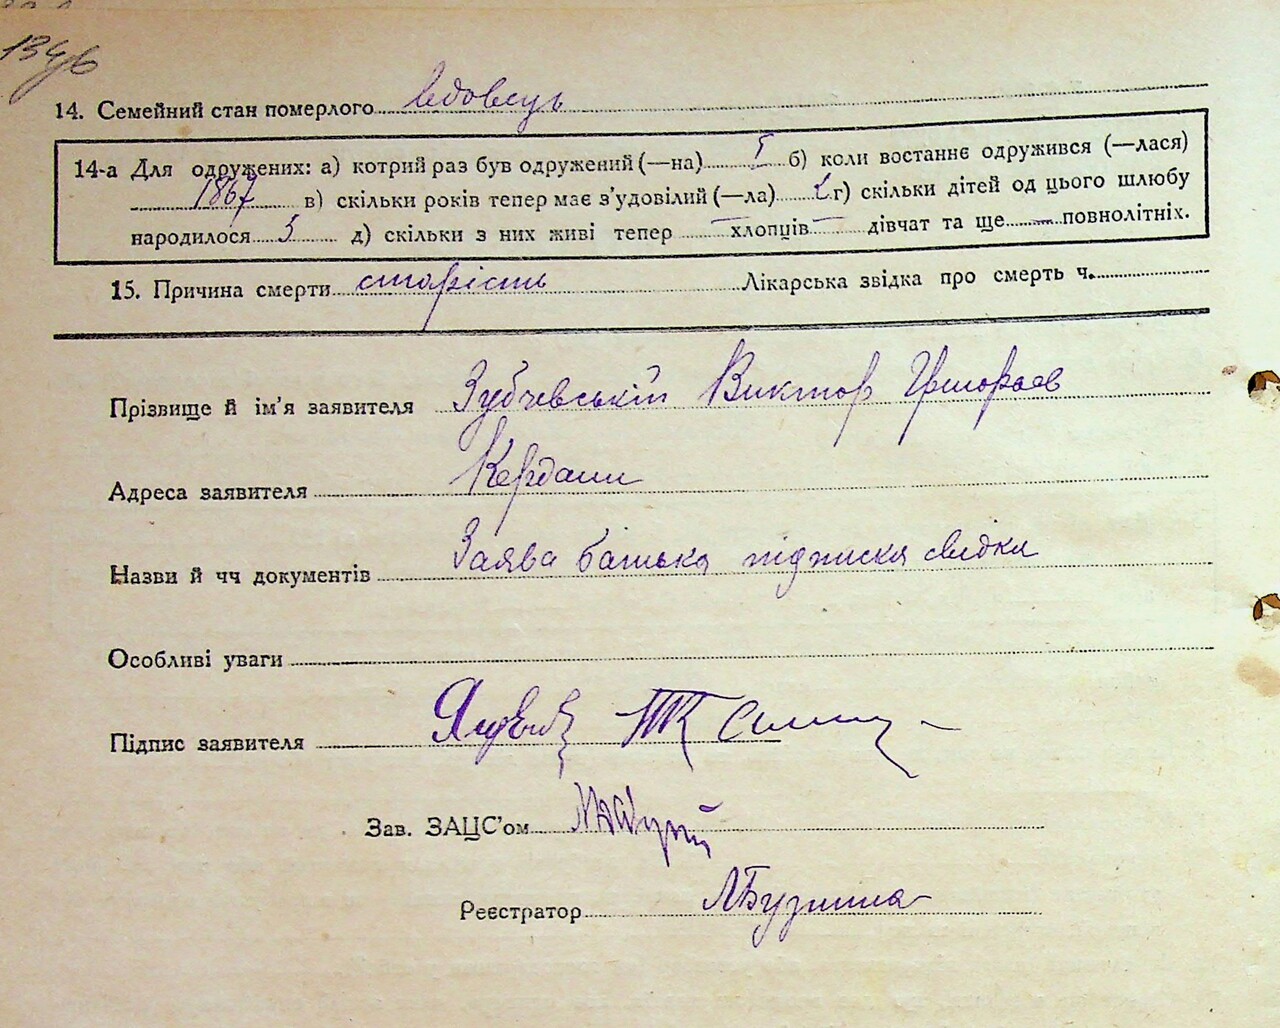 134/6
14. Семейний стан померлого вдовець
14-а Для одружених: а) котрий раз був одружений (—на) I б) коли востаннє одружився (—лася)
1867 в) скільки років тепер має з'удовілий (—ла) г) скільки дітей од цього шлюбу
народилося 3 д) скільки з них живі тепер — хлопців — дівчат та ще — повнолітніх.
15. Причина смерти старість Лікарська звідка про смерть ч.
Прізвище й ім'я заявителя Зубчевський Виктор
Адреса заявителя Кердани
Назви й чч документів Заява батька підписка свідки
Особливі уваги
Підпис заявителя
Зав. ЗАЦС'ом
Реєстратор